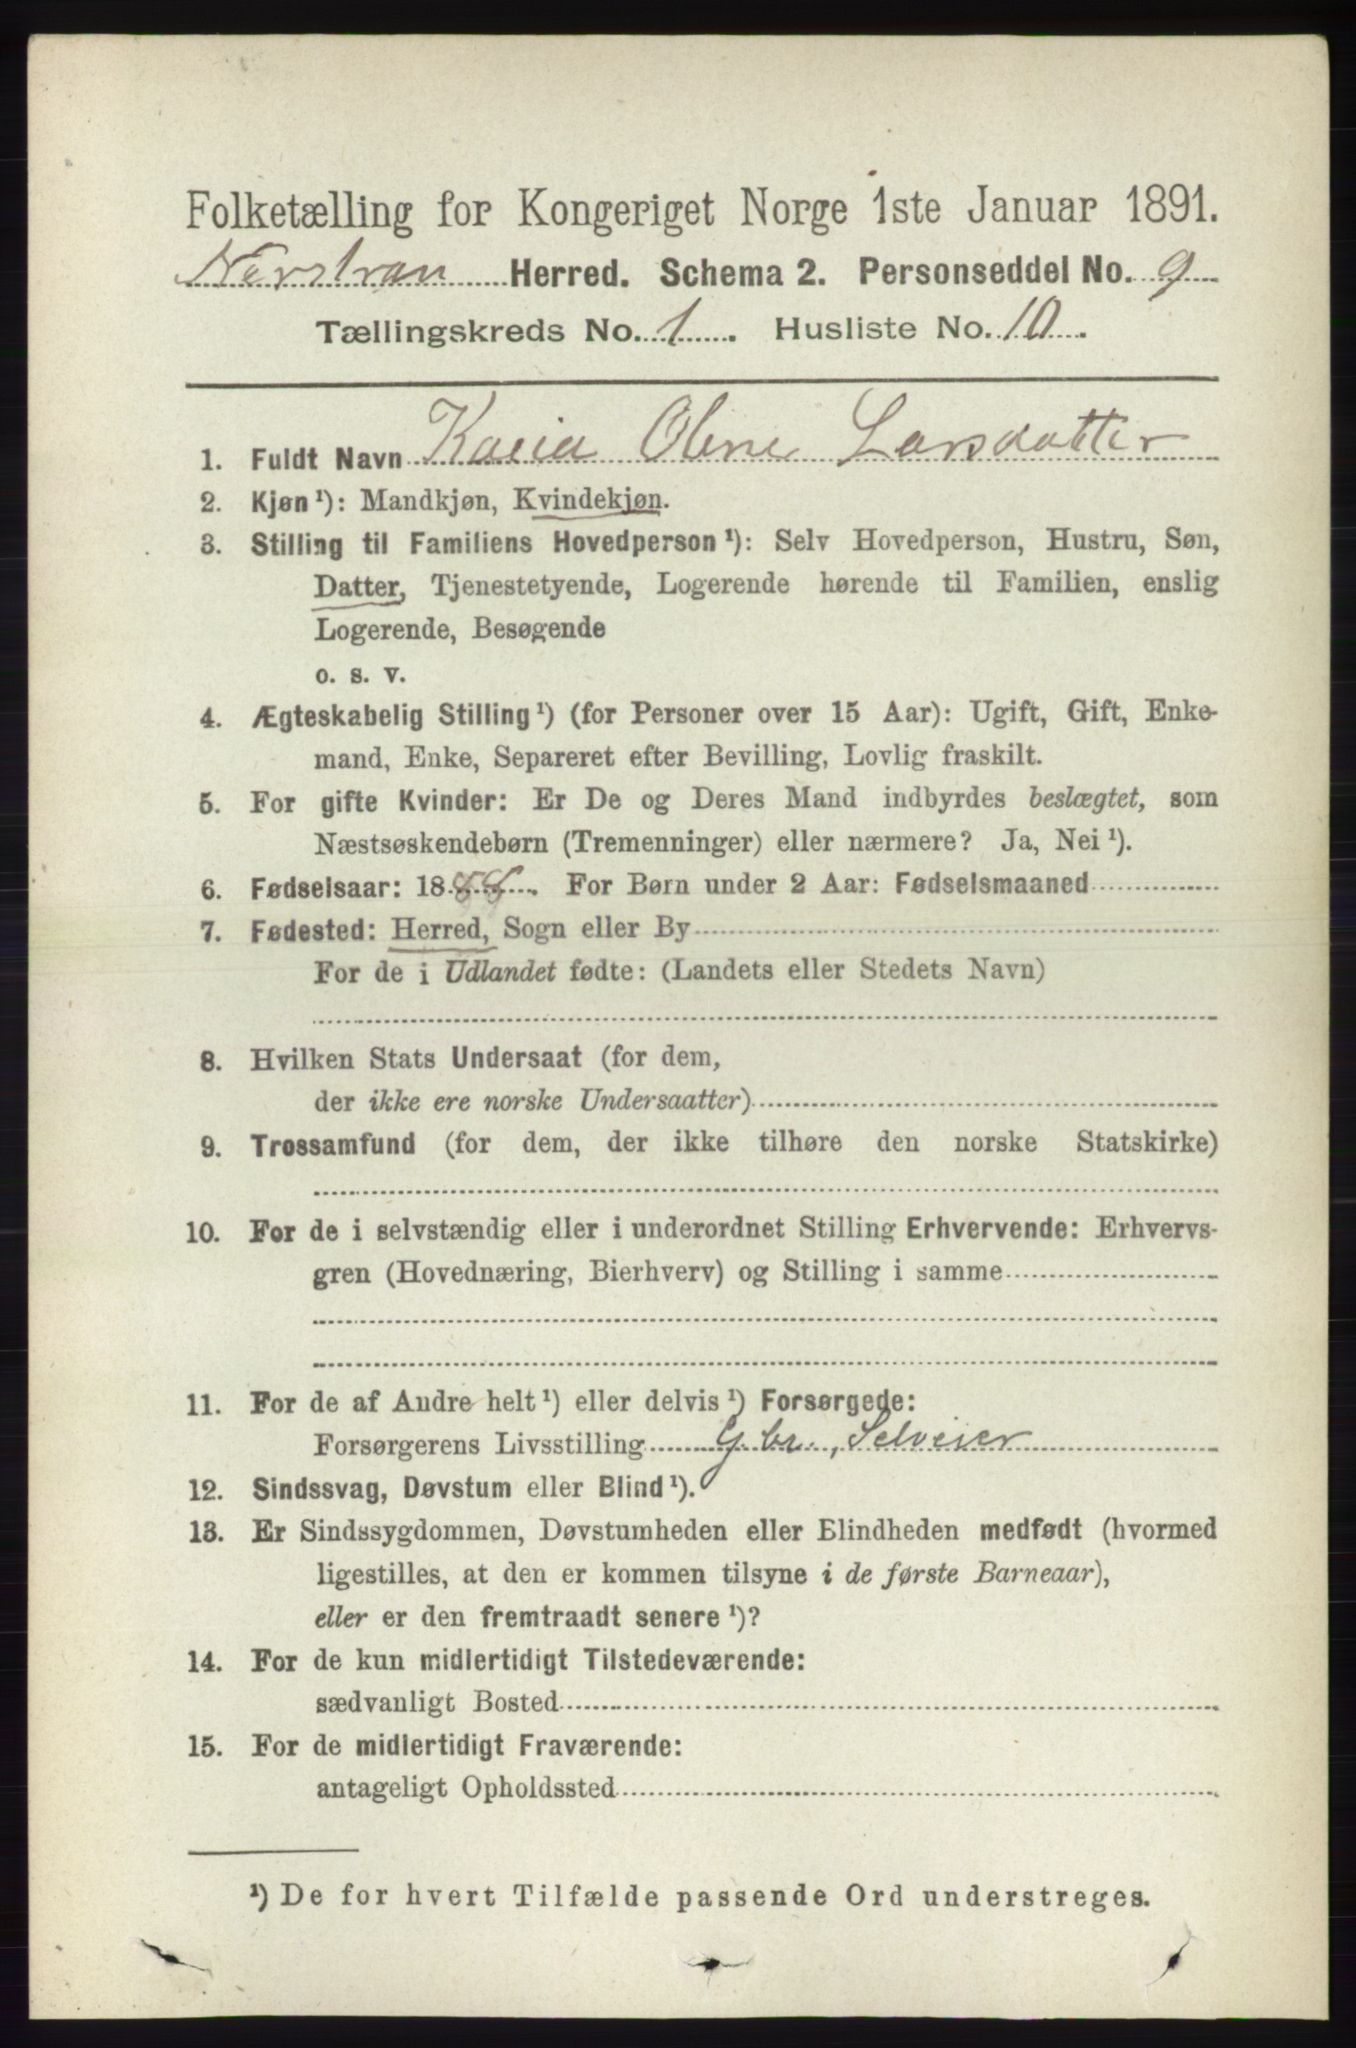 Folketælling for Kongeriget Norge 1ste Januar 1891.
Nerstran Herred. Schema 2. Personseddel No. 9
Tællingskreds No. 1. Husliste No. 10.
1. Fuldt Navn Kaia Oline Larsdatter
2. Kjøn ¹): Mandkjøn, Kvindekjøn.
3. Stilling til Familiens Hovedperson ¹): Selv Hovedperson, Hustru, Søn,
Datter, Tjenestetyende, Logerende hørende til Familien, enslig
Logerende, Besøgende
o. s. v.
4. Ægteskabelig Stilling ¹) (for Personer over 15 Aar): Ugift, Gift, Enke-
mand, Enke, Separeret efter Bevilling, Lovlig fraskilt.
5. For gifte Kvinder: Er De og Deres Mand indbyrdes beslægtet, som
Næstsøskendebørn (Tremenninger) eller nærmere? Ja, Nei ¹).
6. Fødselsaar: 1888. For Børn under 2 Aar: Fødselsmaaned
7. Fødested: Herred, Sogn eller By
For de i Udlandet fødte: (Landets eller Stedets Navn)
8. Hvilken Stats Undersaat (for dem,
der ikke ere norske Undersaatter)
9. Trossamfund (for dem, der ikke tilhøre den norske Statskirke)
10. For de i selvstændig eller i underordnet Stilling Erhvervende: Erhvervs-
gren (Hovednæring, Bierhverv) og Stilling i samme
11. For de af Andre helt ¹) eller delvis ¹) Forsørgede:
Forsørgerens Livsstilling G.br., Selveier
12. Sindssvag, Døvstum eller Blind ¹).
13. Er Sindssygdommen, Døvstumheden eller Blindheden medfødt (hvormed
ligestilles, at den er kommen tilsyne i de første Barneaar),
eller er den fremtraadt senere ¹)?
14. For de kun midlertidigt Tilstedeværende:
sædvanligt Bosted
15. For de midlertidigt Fraværende:
antageligt Opholdssted
¹) De for hvert Tilfælde passende Ord understreges.